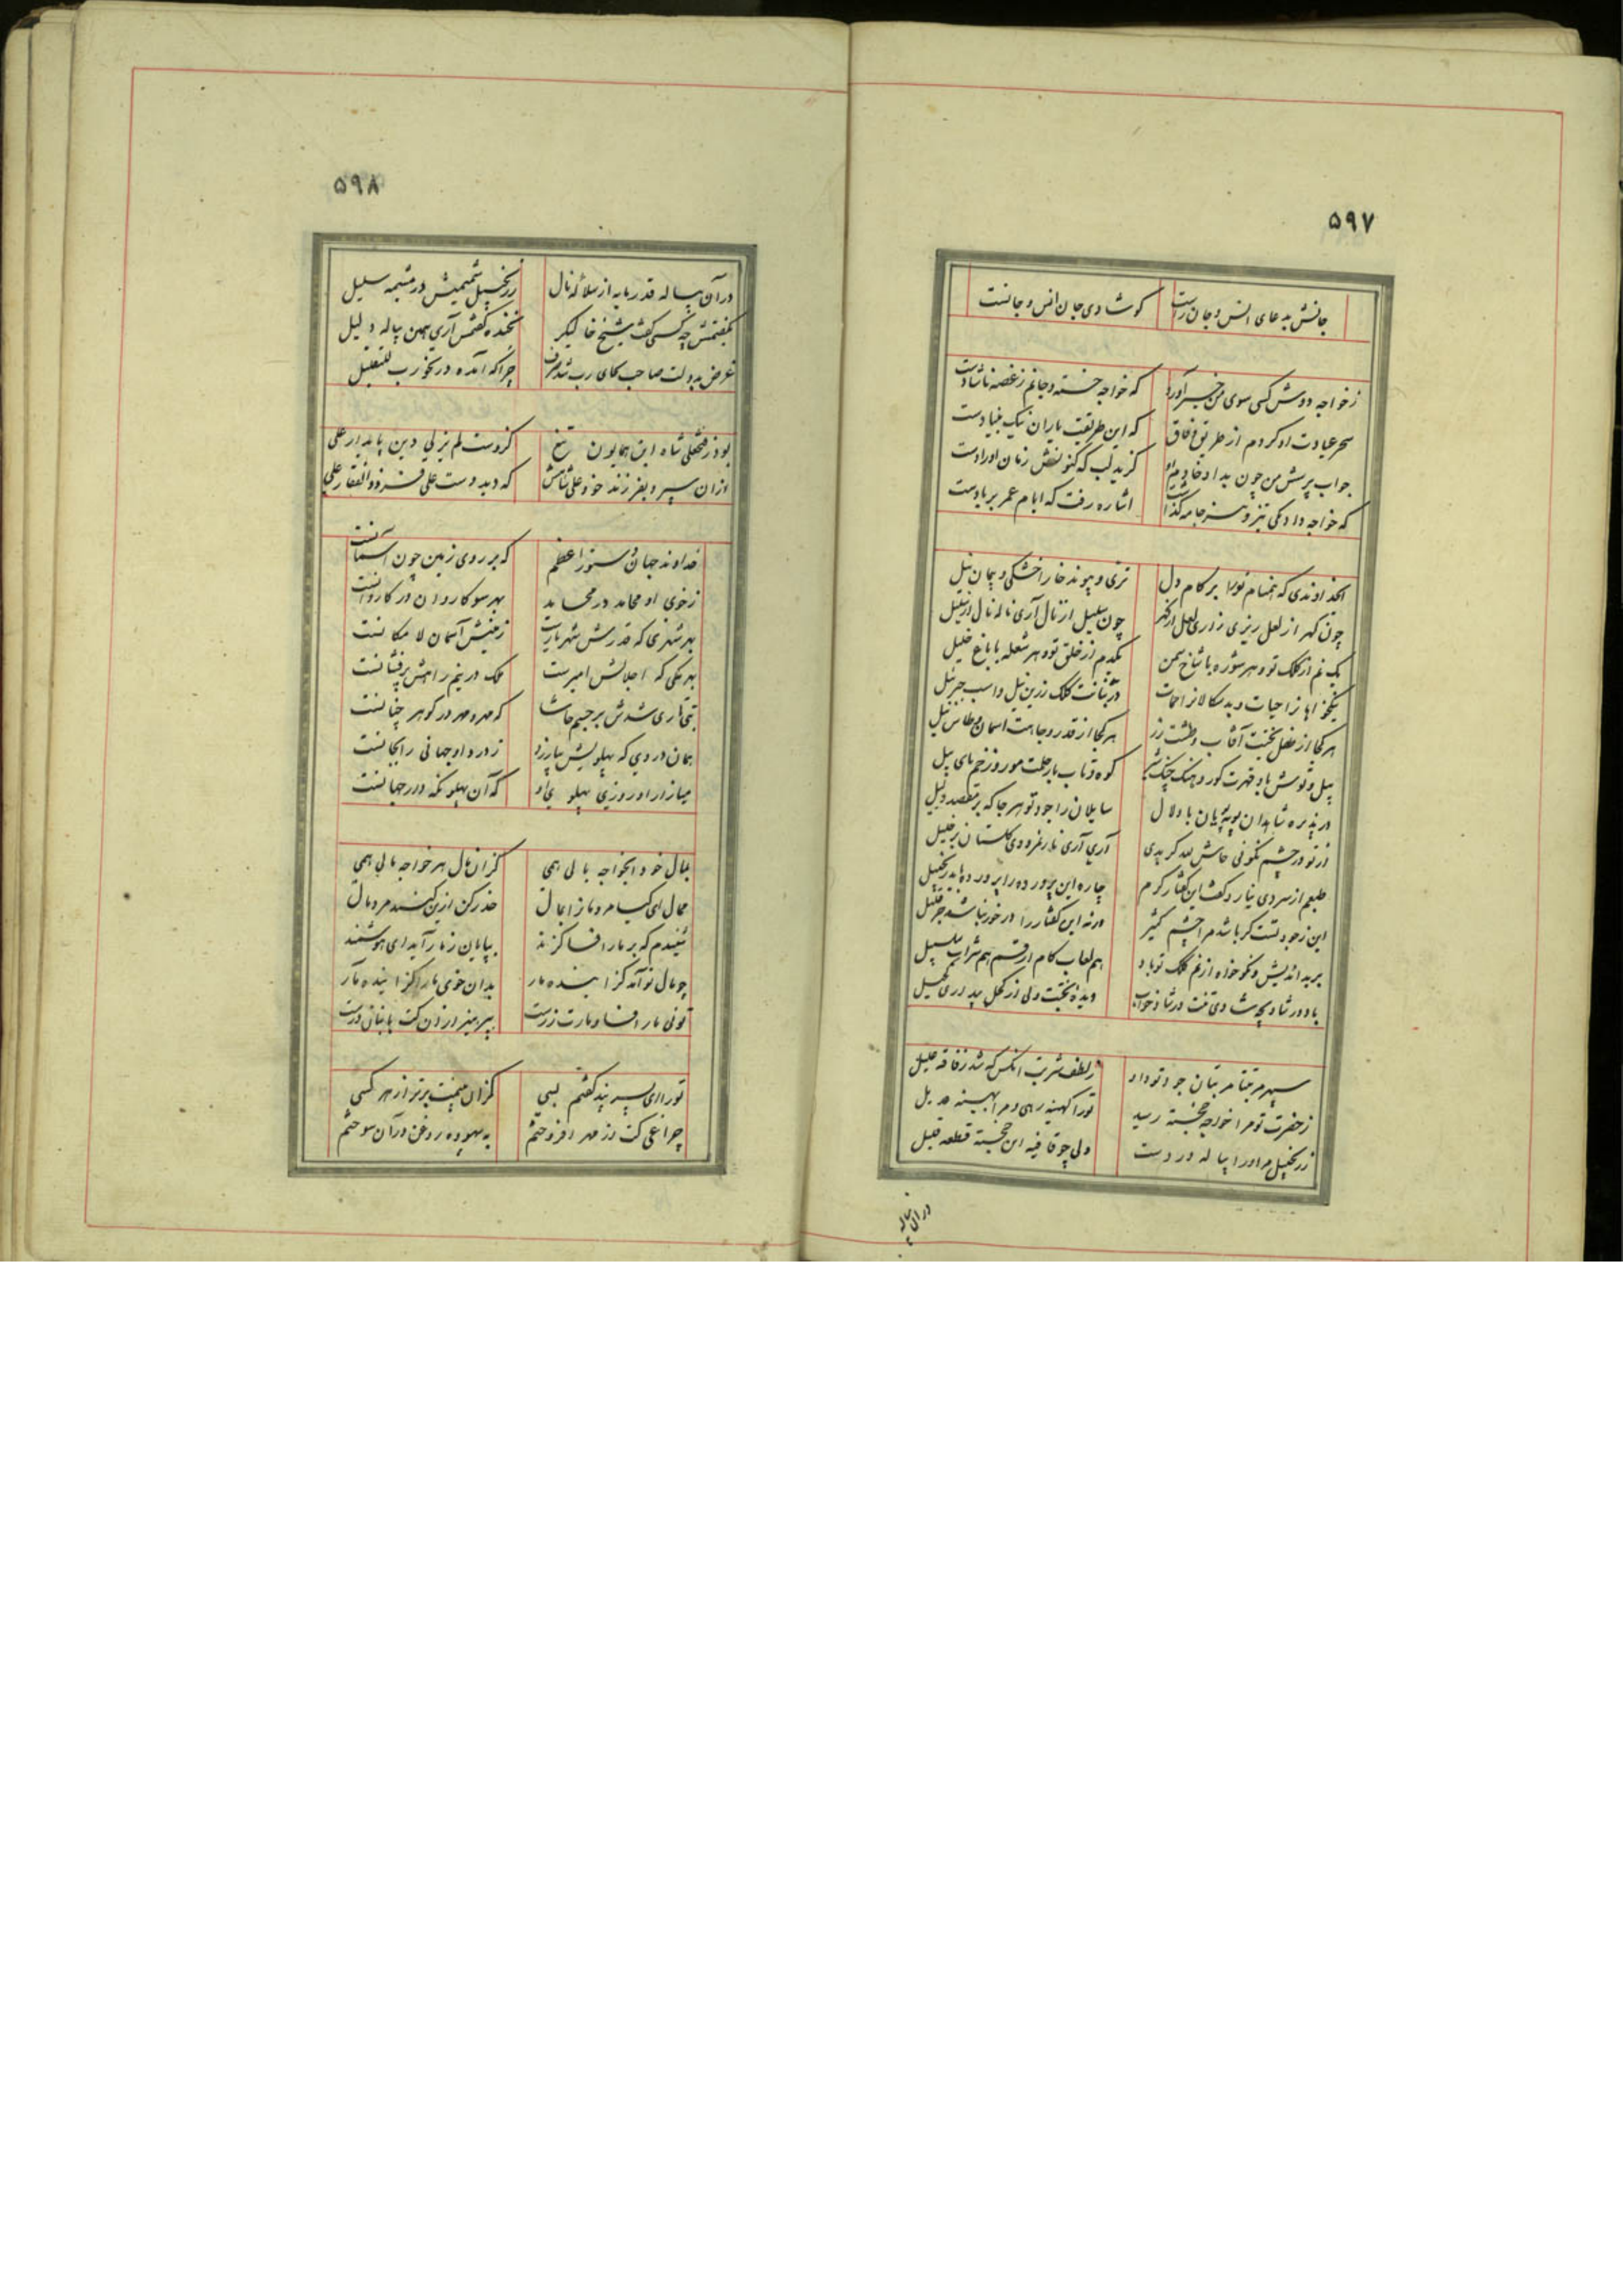 ۵۹۷
جانش بدعای انس و جان راست کو شادی جان انس و جانست
زخواجه دوش کسی سوی من خبر آورد که خواجه خسته و جانم ز غصه ناشادست
سحر عیادت او کردم از طریق وفاق که این طریقت یاران نیک بنیادست
جواب پرسش من چون بداد خادم او گزید لب که کنونش زمان اورادست
که خواجه داد یکی تیز و سبز جامه گذاشت اشاره رفت که ایام عمر بر بادست
ای خداوندی که انعام تو را بر کام دل تری و پیوند خار اخشکی و پیمان نیل
چون گهر از لعل ریزی زاری لعل از گهر چون سلیل از نال آری ناله نال از سلیل
یک نم از کلک تو و هر شوره با شاخ سمن یکدم از خلق تو و هر شعله با باغ خلیل
نیکخواهانرا حیات و بدسکالانرا ممات در بنانت کلک زرین نیل و اسب جبرئیل
هر کجا از فضل بختت آفتاب و طشت زر هر کجا از قدر و جاهت اسمان و طاس نیل
پیل و توش باد قهرت گور و چنگ شیر کوه و تاب بار حلمت مور و زخم پای پیل
در پذیره شاهدان پویه پویان با دلال سایلان را جود تو هر جا که بر مقصد دلیل
از تو در چشم نکوئی حاش لله گر بدی آری آری نار نمرودی گلستان بر خلیل
طبعم از سردی نیارد گفت این گفتار گرم چاره این پرورده را پرورده باید زنجبیل
این ز جود تست گر باشد مرا چشم کثیر ورنه این گفتار را در خور نباشد جز قلیل
بر بداندیش و نکوخواه از نم کلک تو باد هم لعاب کام ارقم هم شراب سلسبیل
باد در شادی چه شادی تفت در شاد خواب دیده بختت ولی از کحل بیداری کحیل
سپهر مرتبتا مر بنان جود تو داد ز لطف شربت انکس که شد ز فاقه علیل
ز حضرت تو مرا خواجه خجسته رسید تو را کهینه رهی و مرا بهینه عدیل
ز زنجبیل مر او را پیاله در دست ولی چو قافیه این خجسته قطعه قلیل
در آن پیاله
۵۹۸
در آن پیاله قدر مایه از سلاله نال ز زنجبیل شمیمیش در مشیمه سلیل
بگفتمش چه کسی گفت شیخ خالیگر بخنده گفتمش آری بهمین پیاله دلیل
غرض بدولت صاحب کمای رب شد صرف چرا که آمده در نخورب للتعلیل
بود ز فتحعلی شاه این همایون تیغ کزوست لم یزلی دین پایدار علی
از ان سپرد بفرزند خود علی شاهش که دید دست علی فرد ذو الفقار علی
خداوند جهان دستور اعظم که بر روی زمین چون آسمانست
ز خوی او محامد در محامد بهر سو کاروان در کاروانست
بهر شهری که قدرش شهریارست زمینش آسمان لا مکانست
بهر ملکی که اجلالش امیرست ملک در نیم راهش پرفشانست
تنی تاری شدش بر جسم حاشا که مهر و مهر در گوهر چنانست
همان دردی که پهلویش بیازرد ز درد او جهانی را بجانست
میازار او روزی پهلوی او که آن پهلو نگهدار جهانست
بمال خود ایخواجه بالی همی کزان مال هر خواجه مالی همی
ممال ای گیا مرد ما را بمال حذر کن ازین کینه مرد مال
شنیدم که بر مار افسا گزند بپایان ز مار آید ای هوشمند
چو مال تو آمد گزاینده مار بدان خوی مار گزاینده مار
توئی مار افسا و مارت زرست بپرهیز از ان کت بپایان درست
تو را ای پسر پند گفتم بسی کزان بینمت برتر از هر کسی
چراغی کت از مهر افروختم به بیهوده روغن در آن سوختم